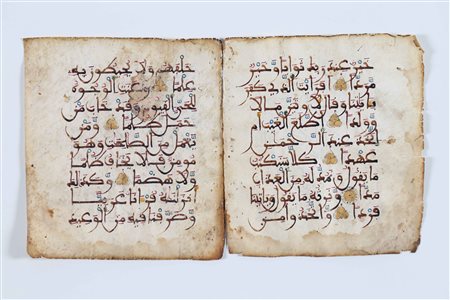 خير عند ربك ثوابا وخير
مردا افرايت الذي كفر
بايتنا وقال لاوتين مالا
وولدا اطلع الغيب ام
اتخذ عند الرحمن
عهدا كلا سنكتب
ما يقول ونمد له من العذاب
مدا ونرثه ما يقول وياتينا
فردا واتخذوا من
خلفهم ولا يحيطون به
علما وعنت الوجوه
للحي القيوم وقد خاب من
حمل ظلما ومن
يعمل من الصلحت وهو
مومن فلا يخاف ظلما
ولا هضما وكذلك
انزلنه قرانا عربيا
وصرفنا فيه من الوعيد